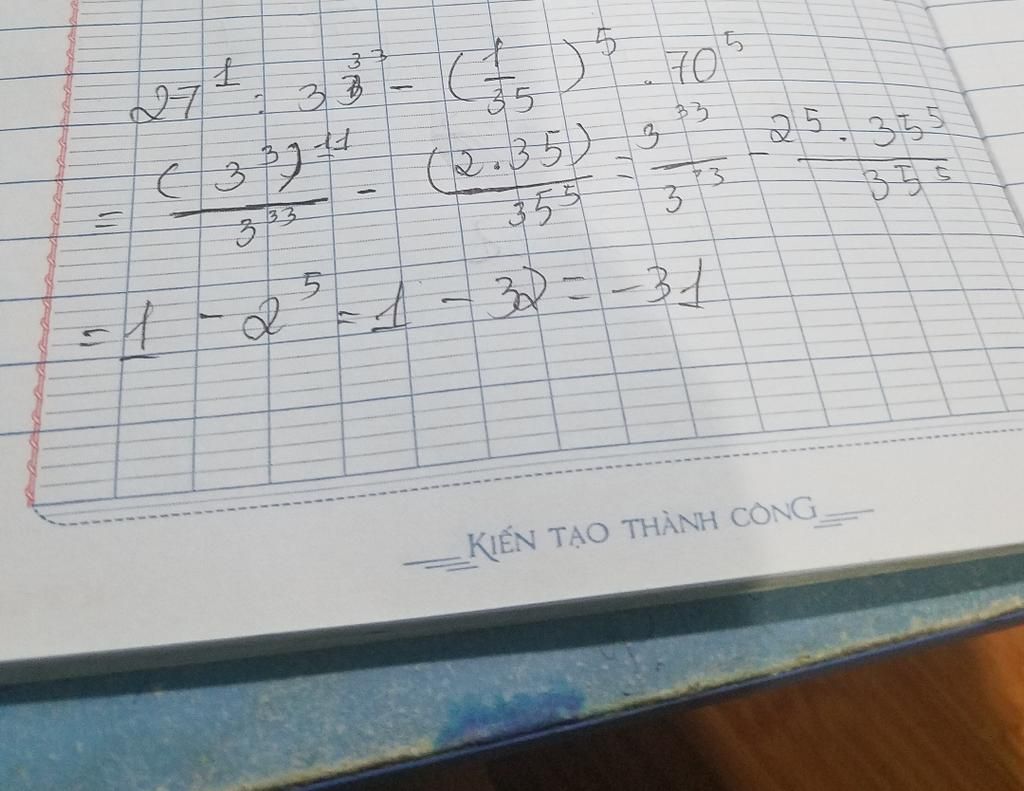 27¹ : 3³³ - (1/35)⁵ . 70⁵
= (3³)¹¹/3³³ - (2.35)/35⁵ = 3³³/3³³ - 2⁵.35⁵/35⁵
= 1 - 2⁵ = 1 - 32 = -31
KIẾN TẠO THÀNH CÔNG